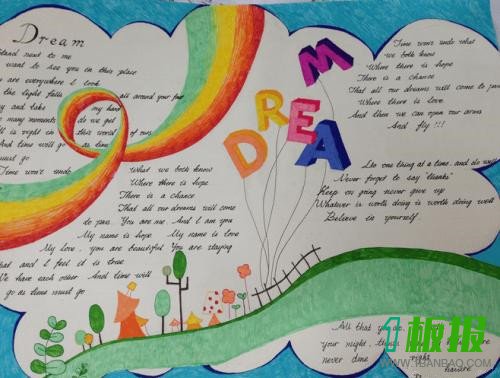 Dream
Stand next to me
want to see you in this place
are everywhere I look
the light falls all around your feet
and take my hand
many moments do we get
is right in this world of ours
And time will go as time
must go
Time won't undo what we both know
Where there is hope
There is a chance
That all our dreams will come
to pass. You are me. And I am you
My name is hope My name is love
My love, you are beautiful You are staying
that and I feel it is true
We have each other And time will
go as time must go
DREAM
Time won't undo what
we both know
Where there is hope
There is a chance
That all our dreams will come to pass
Where there is love
And then we can open our arms
And fly!!!
Do one thing at a time, and do well
Never forget to say "thanks"
Keep on going never give up
Whatever is worth doing is worth doing well
Believe in yourself.
All that you do,
your night,
never done right
1板报
WWW.1BANBAO.COM